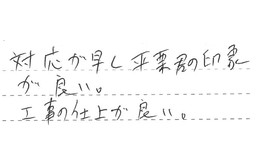 対応が早く平栗君の印象
が良い。
工事の仕上が良い。